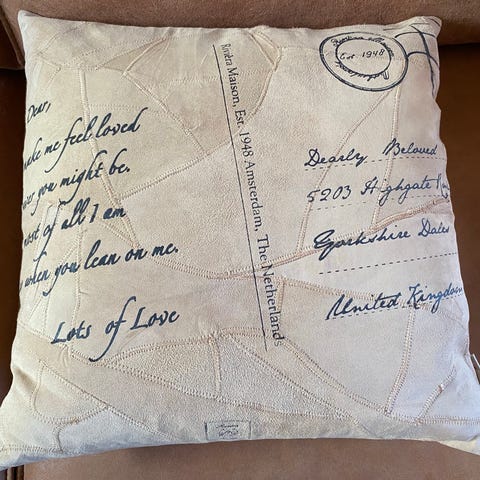 Dear,
make me feel loved
you might be.
most of all I am
when you lean on me.
Lots of Love
Rivièra Maison, Est. 1948 Amsterdam, The Netherlands
Est. 1948
Dearly Beloved
5203 Highgate
Yorkshire Dales
United Kingdom